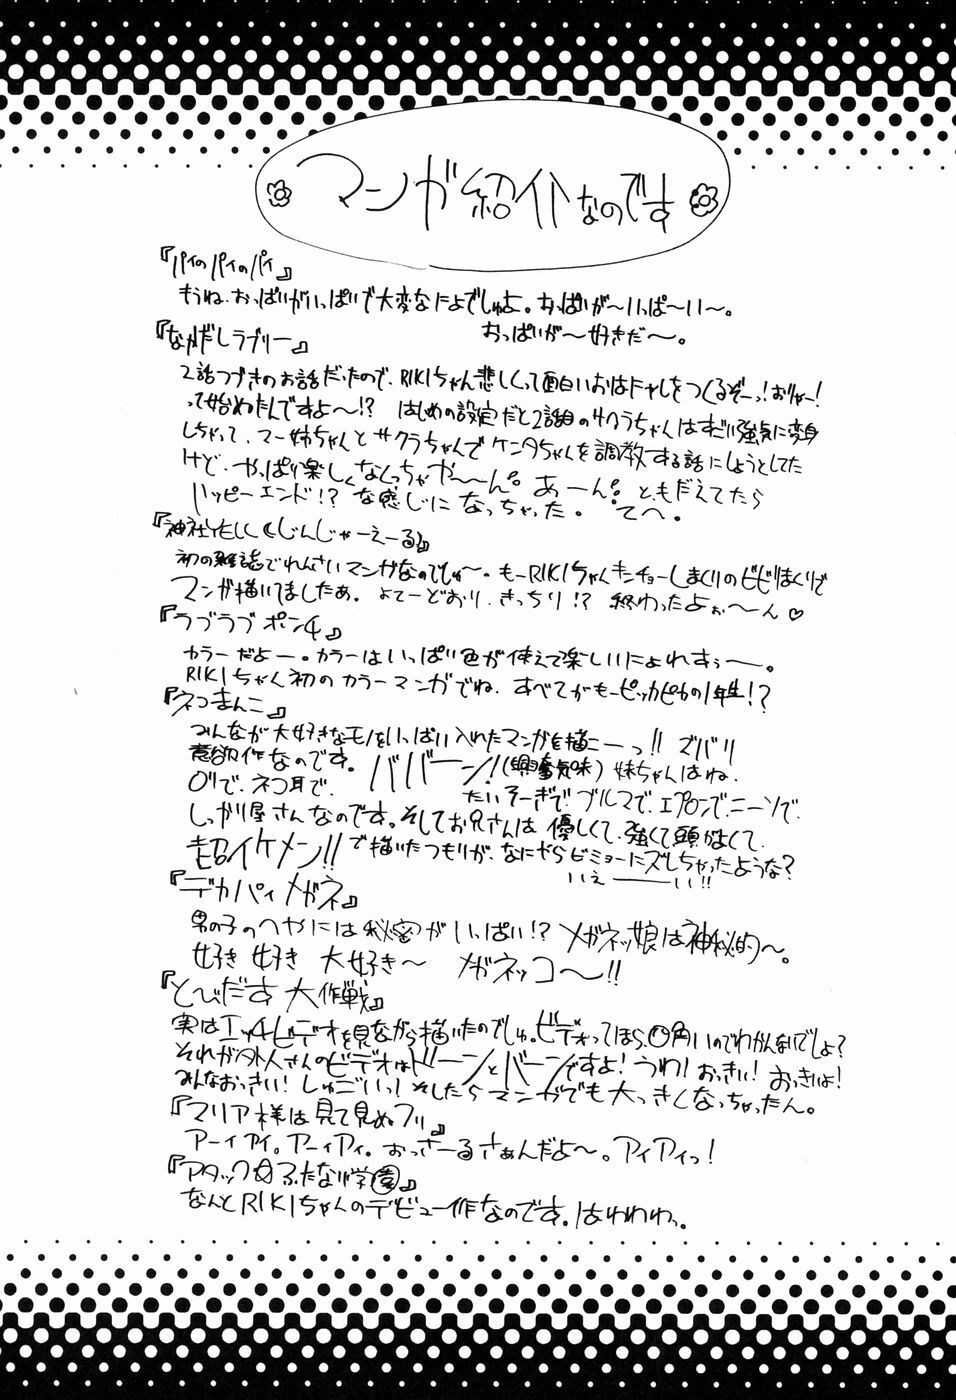 マンガ紹介なのです
『パイのパイのパイ』
もうね、おっぱいがいっぱいで大変なにょでしゅよ。おっぱいが〜いっぱ〜い〜。
おっぱいが〜好きだ〜。
『なかだしラブリー』
2話つづきのお話だったので、RIKIちゃん悲しくって面白いおはナシをつくるぞーっ!おりゃー!
って始めたんですよ〜!? はじめの設定だと2話目のサクラちゃんはすごい強気に変身
しちゃって、マー姉ちゃんとサクラちゃんでケンタちゃんを調教する話にしようとしてた
けど、やっぱり楽しくなくっちゃや〜〜ん。あーん。ともだえてたら
ハッピーエンド!? な感じになっちゃった。てへ。
『神社YELL(じんじゃーえーる)』
初の雑誌でれんさいマンガなのでしゅ〜。もーRIKIちゃんキンチョーしまくりのビビりまくりで
マンガ描いてましたぁ。よてーどおり、きっちり!? 終わったよぉ〜ん♡
『ラブラブポン4』
カラーだよー。カラーはいっぱい色が使えて楽しいにょれすぅー。
RIKIちゃん初のカラーマンガでね、すべてがもーピッカピカの1年生!?
『ネコまんこ』
みんなが大好きなモノをいっぱい入れたマンガを描こーっ!! ズバリ
意欲作なのです。ババーン!(興奮気味)妹ちゃんはね、
ロリで、ネコ耳で、たいそーぎで、ブルマで、エプロンで、ニーソで、
しっかり屋さんなのです。そしてお兄さんは優しくて、強くて頭がよくて、
超イケメン!!で描いたつもりが、なにやらビミョーにズレちゃったような?
いえーーーい!!
『デカパイメガネ』
男の子のへやには秘密がいっぱい!? メガネッ娘は神秘的〜。
好き 好き 大好き〜 メガネッコ〜!!
『とびだす大作戦』
実はエッチビデオを見ながら描いたのでしゅ。ビデオってほら、〇角いのでわかんないでしょ?
それが外人さんのビデオはドーンとバーンですよ!うわ!おっきい!おっきぃよ!
みんなおっきい!しゅごいっ!そしたらマンガでも大っきくなっちゃったん。
『マリア様は見て見ぬフリ』
アーイアイ。アーイアイ。おっさーるさぁんだよ〜。アイアイっ!
『アタック☆ふたなり学園』
なんとRIKIちゃんのデビュー作なのです。はわわわっ。